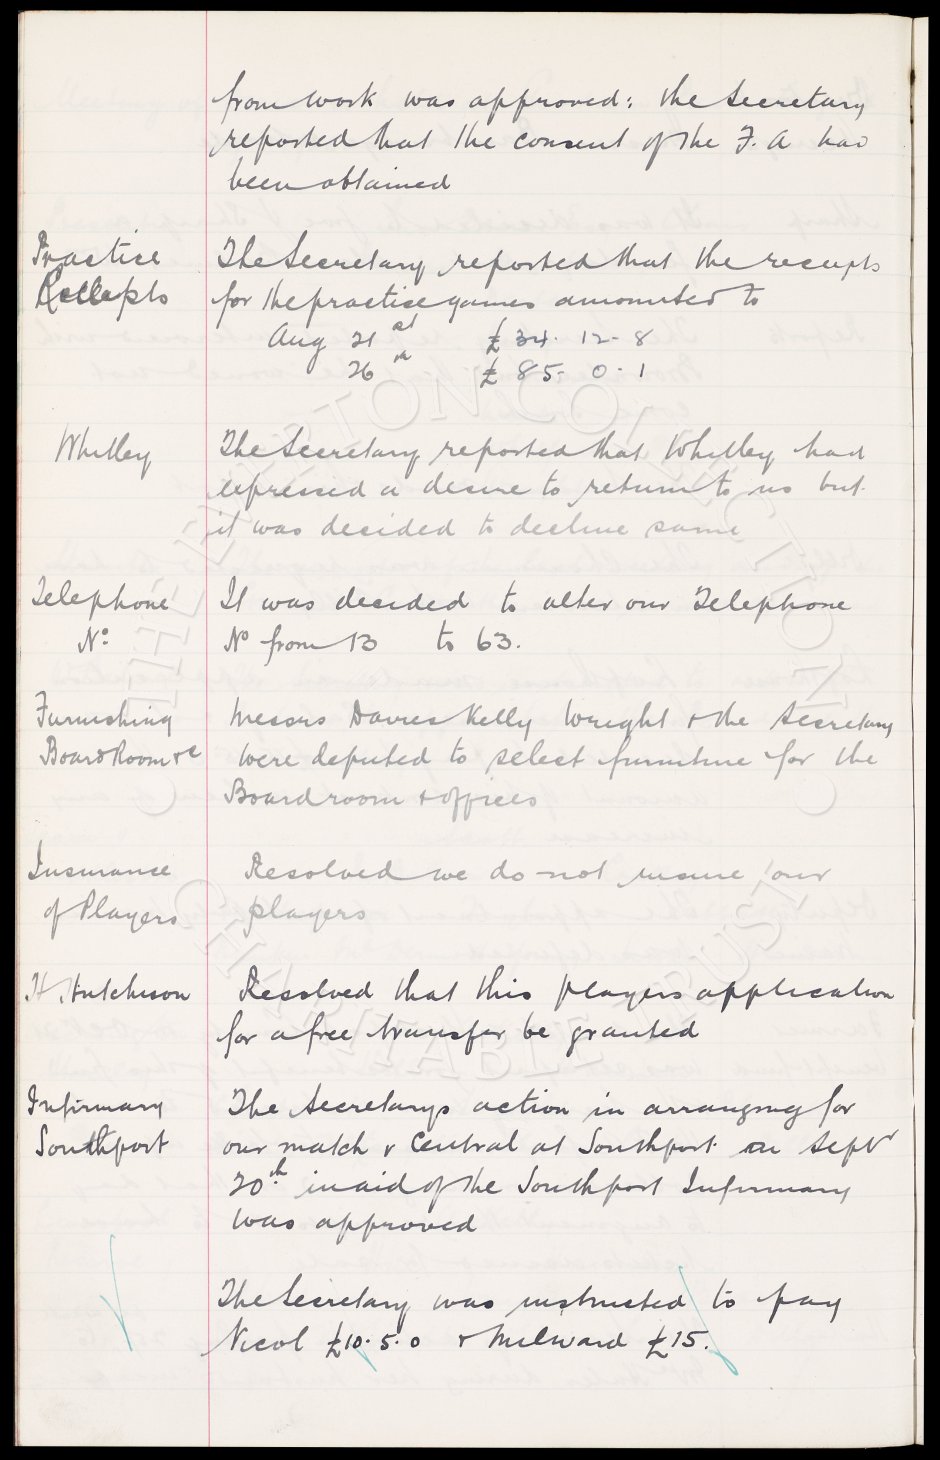 from work was approved: the Secretary
reported that the consent of the F. A had
been obtained
Practice The Secretary reported that the receipts
Receipts for the practice games amounted to
Aug 21st £34. 12. 8
26th £85. 0. 1
Whitley The Secretary reported that Whitley had
expressed a desire to return to us but
it was decided to decline same
Telephone It was decided to alter our Telephone
No. No from 13 to 63.
Furnishing Messrs Davies Kelly Wright & the Secretary
Board Room &c were deputed to select furniture for the
Boardroom & offices
Insurance Resolved we do not insure our
of Players players
H. Hutchison Resolved that this players application
for a free transfer be granted
Infirmary The Secretarys action in arranging for
Southport our match v Central at Southport on Septr
20th. in aid of the Southport Infirmary
was approved
The Secretary was instructed to pay
Nicol £10. 5. 0 & Milward £15.
THE EVERTON COLLECTION
CHARITABLE TRUST